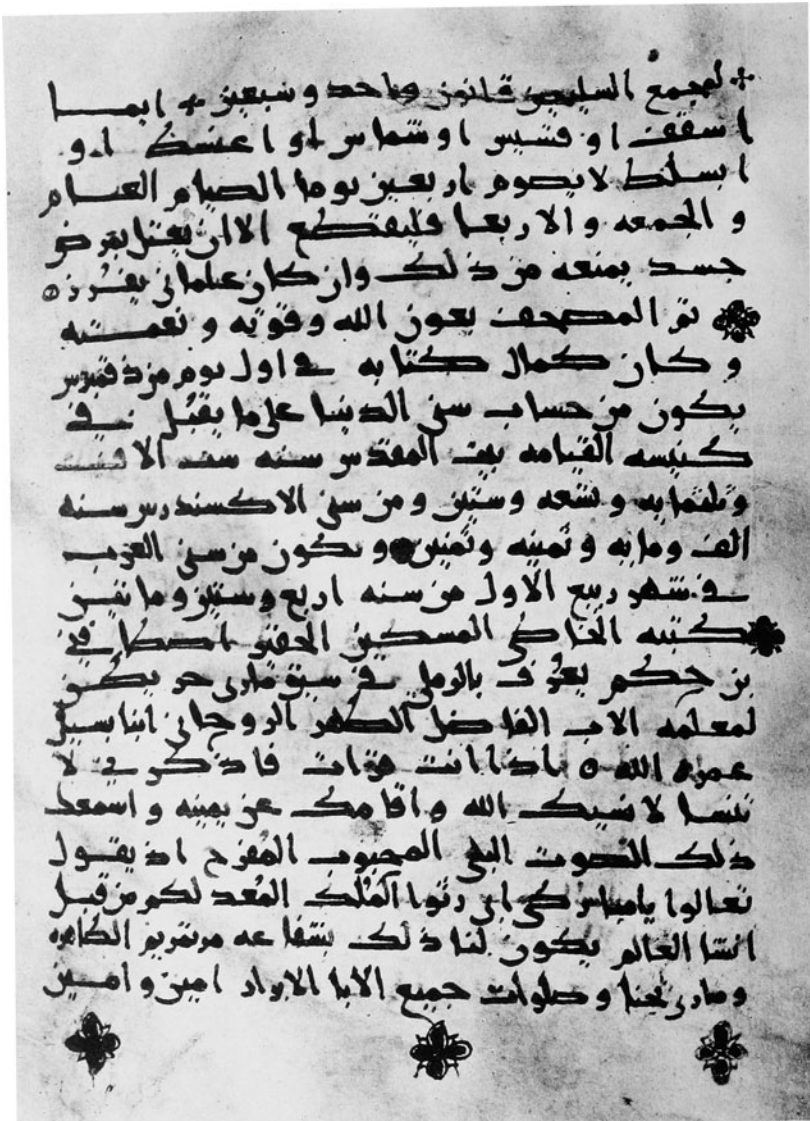 لمجمع السليحين قانون واحد وسبعين ايما
اسقف او قسيس او شماس او اغنسط او
ابسلط لا يصوم اربعين يوما الصيام العام
و الجمعه و الاربعا فليقطع الا ان يعتل بمرض
جسد يمنعه من ذلك وان كان علماني يفرز ه
تم المصحف بعون الله وقوته و نعمته
و كان كمال كتابه في اول يوم من
يكون من حساب سني الدنيا على ما يقبل في
كنيسه القيامه بيت المقدس سنه سته الاف
وثلثمايه و تسعه وستين و من سني الاكسندرس سنه
الف ومايه و ثمنيه وثمنين و يكون من سني العرب
في شهر ربيع الاول من سنه اربع وستين وماتين
كتبه الخاطي المسكين الحقير اصطافني
بن حكم يعرف بالرملي في سيق ماري حريطن
لمعلمه الاب الفاضل الطهر الروحاني انبا بسيل
عمره الله ه اذا انت قرات فاذكرني لا
تنسا لا نسيك الله و اقامك عن يمينه و اسمعك
ذلك الصوت البهي المحبوب المفرح اذ يقول
تعالوا يامباركي ابي رثوا الملك المعد لكم من قبل
انشا العالم يكون لنا ذلك بشفاعه مرتمريم الطاهره
وماري يحنا و صلوات جميع الابا الابرار امين و امين